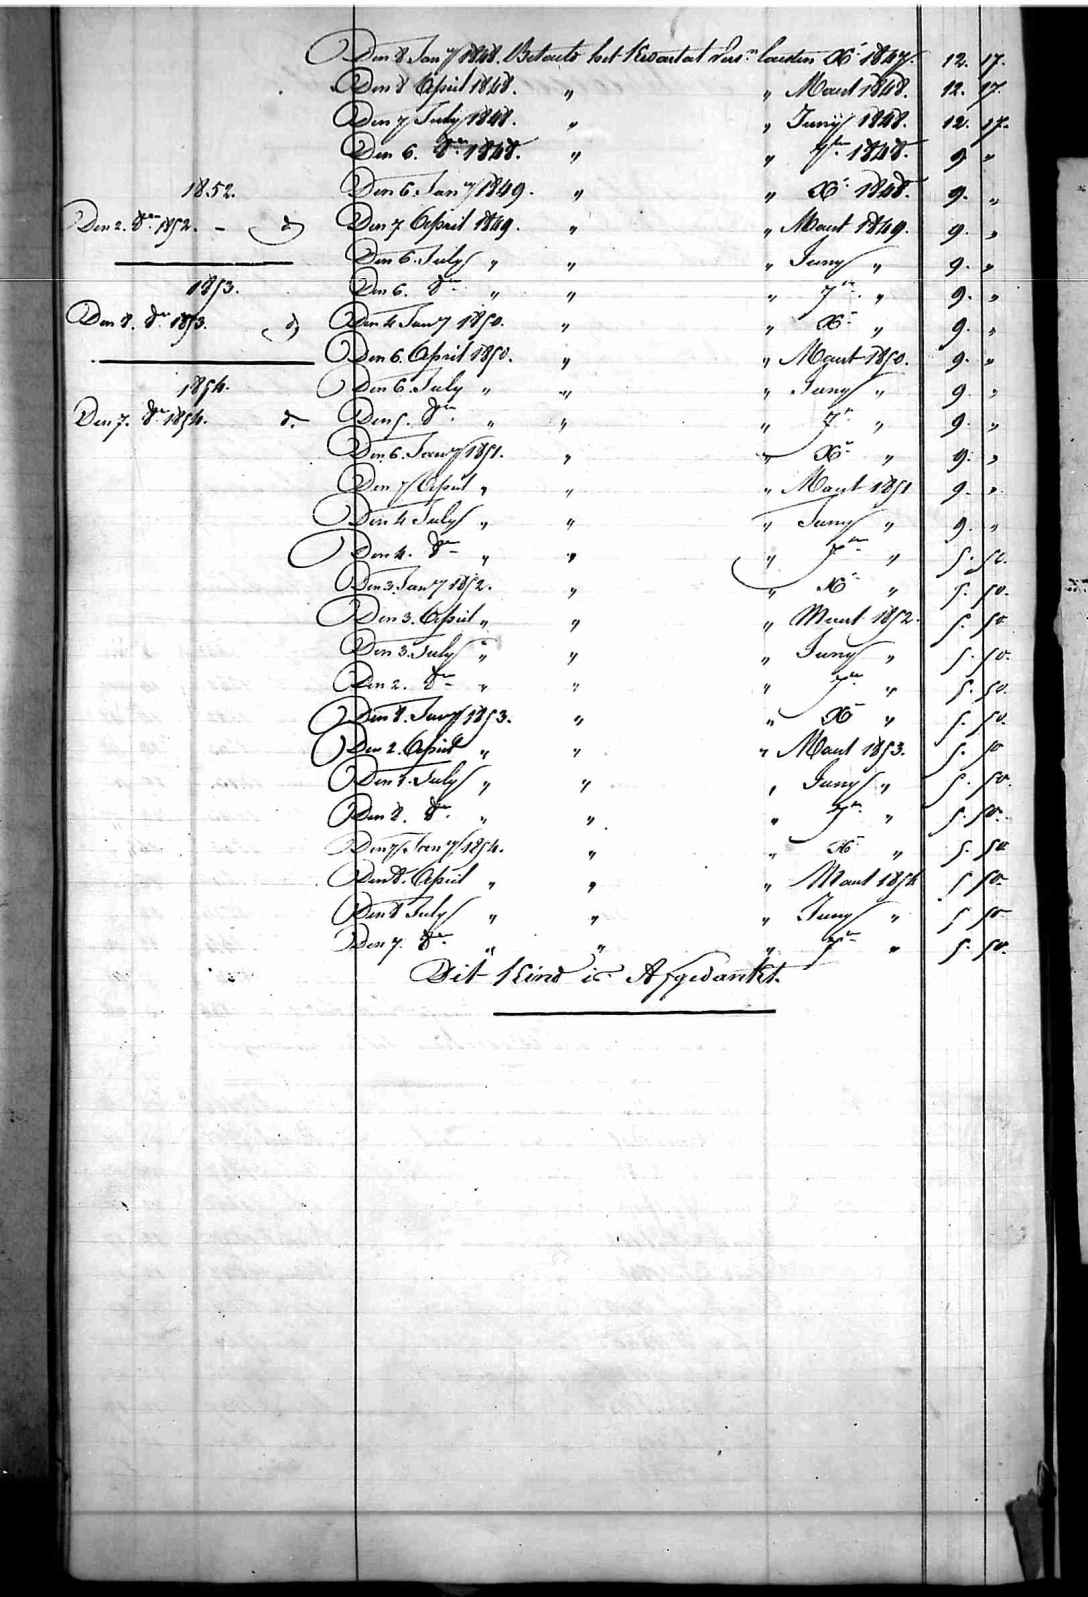 Den 8 Jany 1848. Betaald het Kwartaal Xr 1847. 12. 17.
Den 8 April 1848. " " Maart 1848. 12. 17.
Den 7 July 1848. " " Juny 1848. 12. 17.
Den 6. 8er 1848. " " 7er 1848. 9. "
1852. Den 6. Jany 1849. " " Xr 1848. 9. "
Den 2. 8er 1852. - d Den 7. April 1849. " " Maart 1849. 9. "
Den 6. July " " " Juny " 9. "
1853. Den 6. 8er " " " 7er " 9. "
Den 8. 8er 1853. d Den 4 Jany 1850. " " Xr " 9. "
Den 6. April 1850. " " Maart 1850. 9. "
1854. Den 6. July " " " Juny " 9. "
Den 7. 8er 1854. d. Den 5. 8er " " " 7er " 9. "
Den 6. Jany 1851. " " Xr " 9. "
Den 7 April " " " Maart 1851 9. "
Den 4 July " " " Juny " 9. "
Den 4. 8er " " " 7er " 5. 50.
Den 3. Jany 1852. " " Xr " 5. 50.
Den 3. April " " " Maart 1852. 5. 50
Den 3. July " " " Juny " 5. 50.
Den 2. 8er " " " 7er " 5. 50.
Den 8. Jany 1853. " " Xr " 5. 50.
Den 2. April " " " Maart 1853. 5. 50
Den July " " " Juny " 5. 50.
Den 8. 8er " " " 7er " 5. 50.
Den 7. Jany 1854. " " Xr " 5. 50
Den 8. April " " " Maart 1854 5 50.
Den 8 July " " " Juny " 5 50
Den 7. 8er " " " 7er " 5. 50.
Dit Kind is Afgedankt.